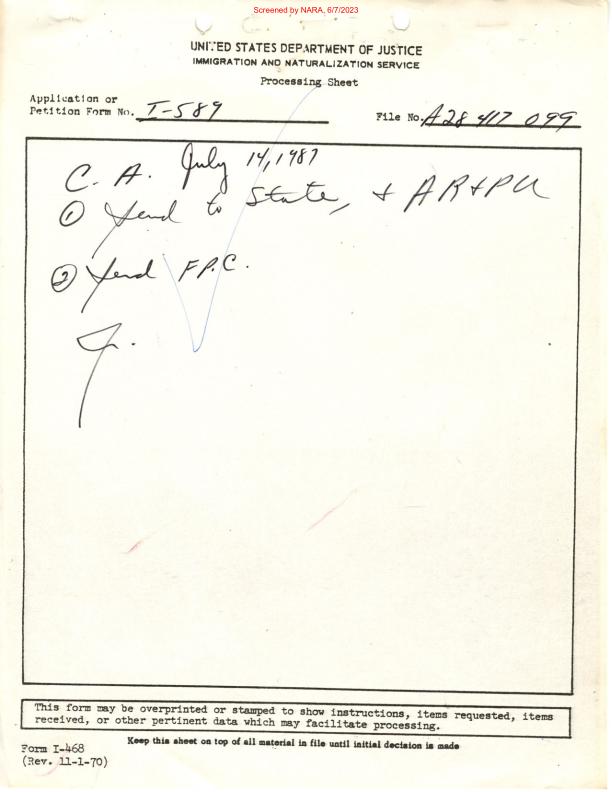 Screened by NARA, 6/7/2023
UNITED STATES DEPARTMENT OF JUSTICE
IMMIGRATION AND NATURALIZATION SERVICE
Processing Sheet
Application or
Petition Form No. I-589
File No. A28 417 099
C. A. July 14, 1987
① Send to State, + AR+PU
② Send F.P.C.
This form may be overprinted or stamped to show instructions, items requested, items
received, or other pertinent data which may facilitate processing.
Keep this sheet on top of all material in file until initial decision is made
Form I-468
(Rev. 11-1-70)